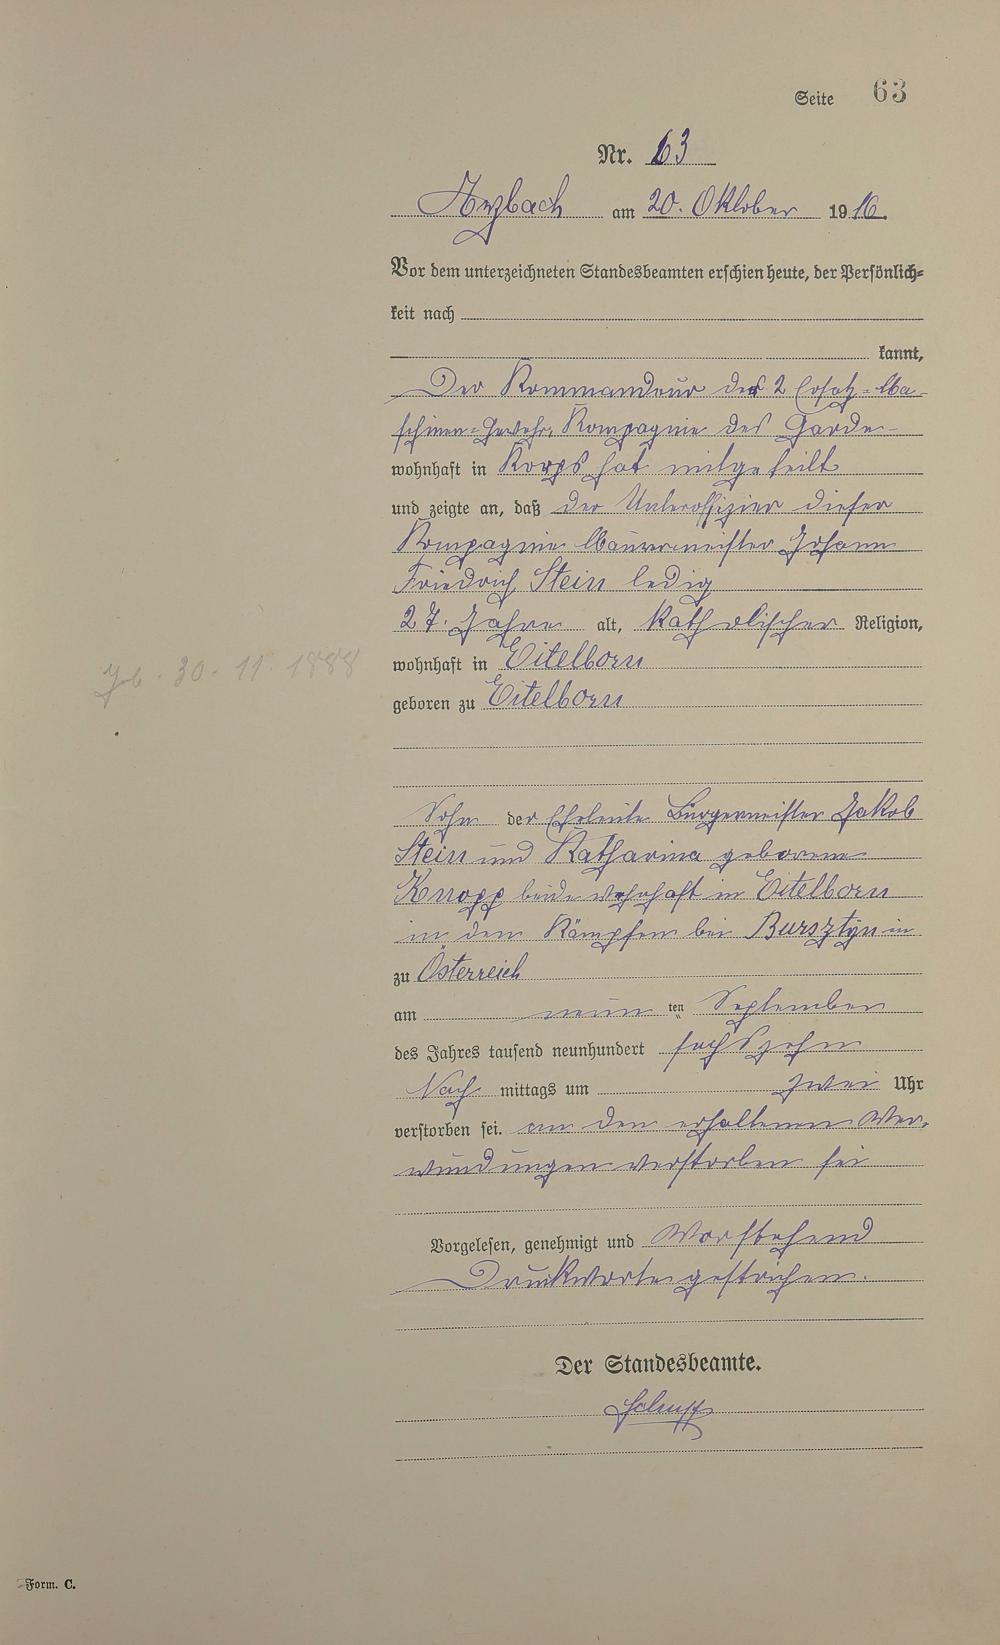 Seite 63
Nr. 63
Arzbach am 20. Oktober 1916.
Vor dem unterzeichneten Standesbeamten erschien heute, der Persönlich-
keit nach
kannt,
Der Kommandeur der 2 Ersatz-Ma-
schinen-Gewehr-Kompagnie des Garde-
wohnhaft in Korps hat mitgeteilt
und zeigte an, daß der Unteroffizier dieser
Kompagnie Maurermeister Johann
Friedrich Stein ledig
27. Jahre alt, katholischer Religion,
Geb. 30. 11. 1888
wohnhaft in Eitelborn
geboren zu Eitelborn
Sohn der Eheleute Bürgermeister Jakob
Stein und Katharina geborene
Knopp beide wohnhaft in Eitelborn
in den Kämpfen bei Bursztyn in
zu Österreich
am neun ten September
des Jahres tausend neunhundert sechszehn
Nach mittags um zwei Uhr
verstorben sei. an den erhaltenen Ver-
wundungen verstorben sei
Vorgelesen, genehmigt und Vorstehend
Druckworte gestrichen.
Der Standesbeamte.
Form. C.